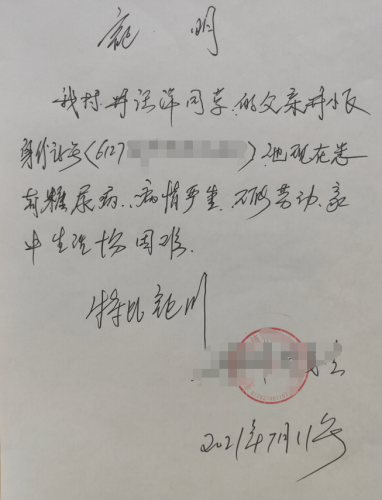 证明
我村井泽洋同学的父亲井小反
身份证号(6127 )他现在患
有糖尿病,病情严重,不能劳动,家
中生活十分困难.
特此证明
2021年7月11号